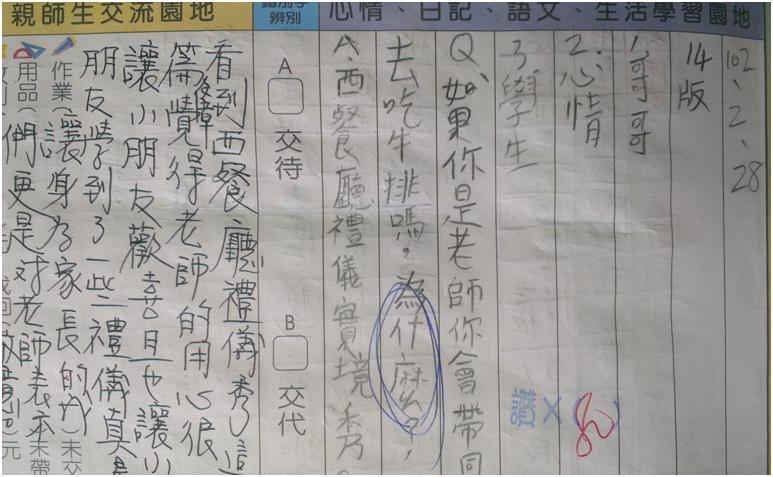 親師生交流園地
錯別字
辨別
心情、日記、語文、生活學習園地
102、2、28
14版
1、哥哥
2、心情
3、學生
Q、如果你是老師你會帶同
去吃牛排嗎?為什麼?
A、西餐廳禮儀實境秀。
讚×(
A
交待
B
交代
看到西餐廳禮儀秀這
篇後覺得老師的用心很
讓小朋友歡喜且也讓小
朋友學到了一些禮儀真是
讓身為家長的我
們更是對老師表示
作業
未交
用品
未帶